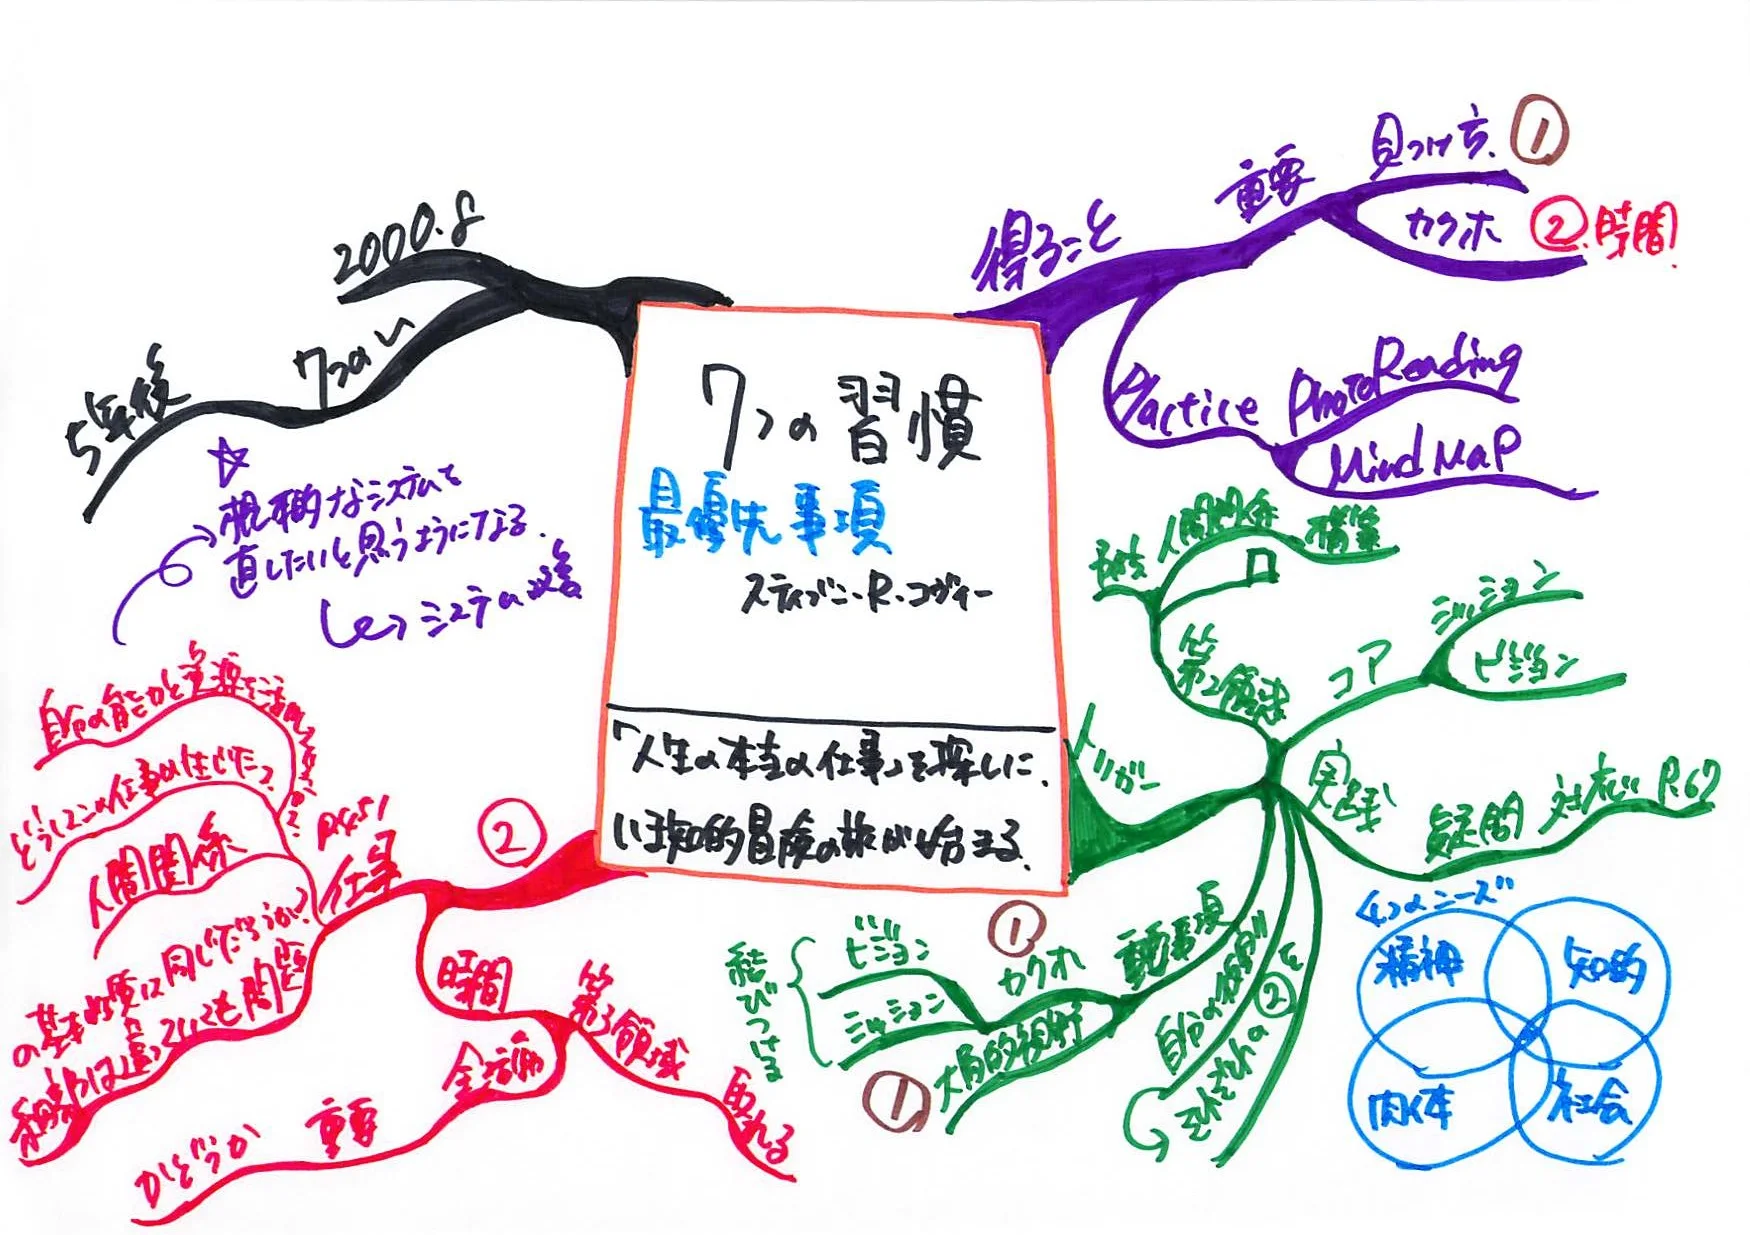 7つの習慣
最優先事項
スティブン・R・コヴィー
「人生の本当の仕事」を探しに、
いま知的冒険の旅が始まる。
2000.8
5年後
☆
根本的なシステムを
直したいと思うようになる。
システムの改善
得ること
重要
見つけ方. ①
カクホ ②.時間
Practice
PhotoReading
Mind Map
トリガー
第2領域
予防
人間関係
構築
コア
ミッション
ビジョン
実践
疑問
対応 P.67
重要事項
カクホ
①
ビジョン
ミッション
結びつける
大局的視野
①
自分の役割
②
それぞれの
4つのニーズ
精神
知的
肉体
社会
②
仕事
P.451
自分の能力と資源を活用
人間関係
の基本的性質は同じだろうか?
細部は違っていても問題
時間
第3領域
取れる
全活動
重要
かどうか